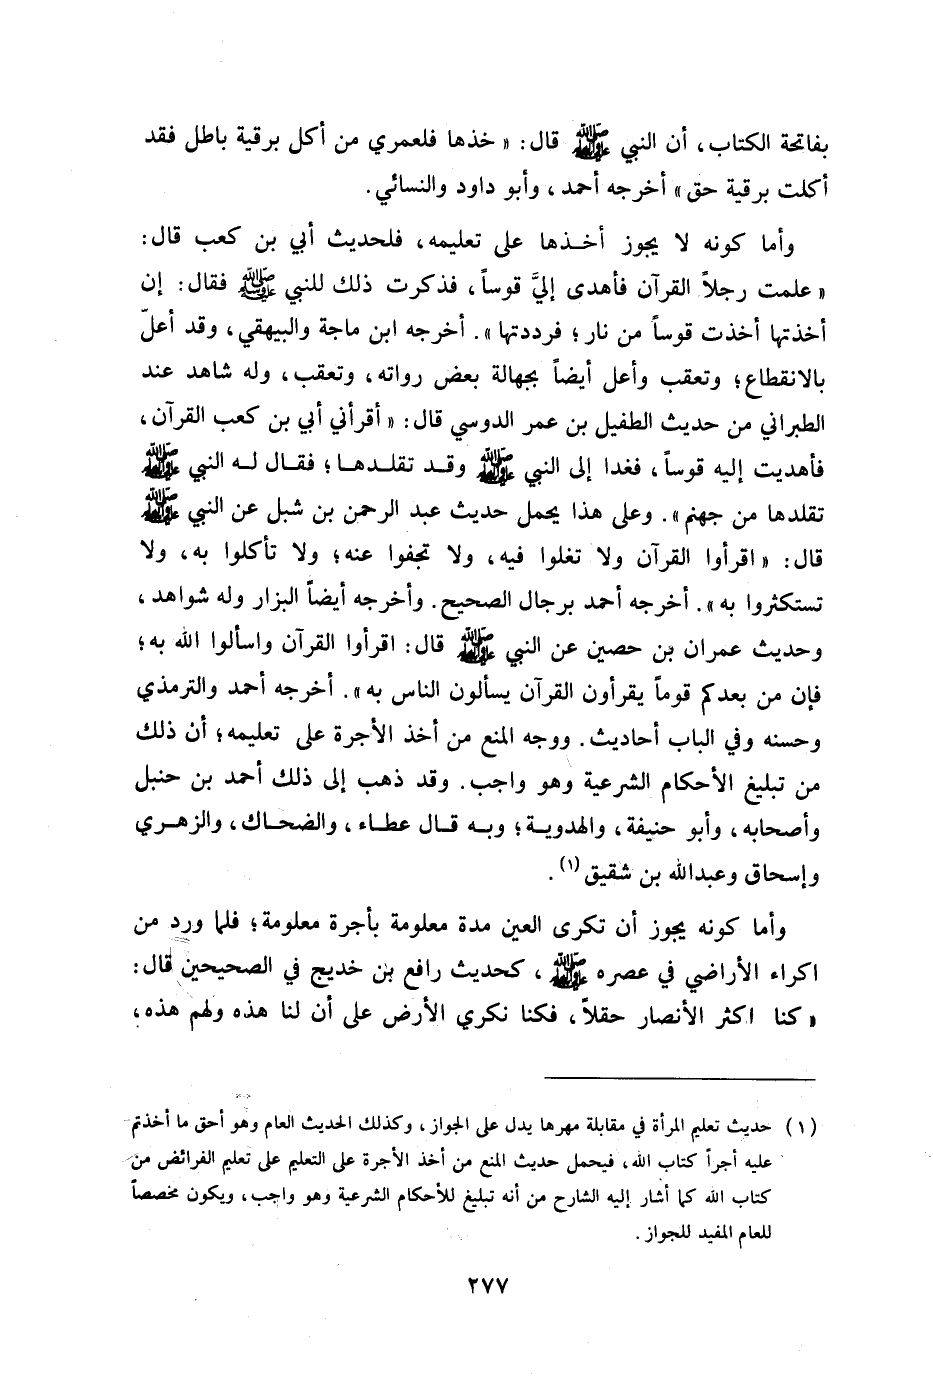 بفاتحة الكتاب، أن النبي ﷺ قال: « خذها فلعمري من أكل برقية باطل فقد
أكلت برقية حق » أخرجه أحمد ، وأبو داود والنسائي.
وأما كونه لا يجوز أخـذها على تعليمه، فلحديث أبي بن كعب قال:
« علمت رجلاً القرآن فأهدى إليَّ قوساً ، فذكرت ذلك للنبي ﷺ فقال: إن
أخذتها أخذت قوساً من نار ؛ فرددتها » . أخرجه ابن ماجة والبيهقي ، وقد أعلّ
بالانقطاع؛ وتعقب وأعل أيضاً بجهالة بعض رواته، وتعقب، وله شاهد عند
الطبراني من حديث الطفيل بن عمر الدوسي قال: « أقرأني أبي بن كعب القرآن ،
فأهديت إليه قوساً ، فغدا إلى النبي ﷺ وقـد تقلـدهـا ؛ فقـال لـه النبي ﷺ
تقلدها من جهنم » . وعلى هذا يحمل حديث عبد الرحمن بن شبل عن النبي ﷺ
قال: « اقرأوا القرآن ولا تغلوا فيه، ولا تجفوا عنه؛ ولا تأكلوا به، ولا
تستكثروا به » . أخرجه أحمد برجال الصحيح. وأخرجه أيضاً البزار وله شواهد ،
وحديث عمران بن حصين عن النبي ﷺ قال: اقرأوا القرآن واسألوا الله به؛
فإن من بعدكم قوماً يقرأون القرآن يسألون الناس به » . أخرجه أحمد والترمذي
وحسنه وفي الباب أحاديث. ووجه المنع من أخذ الأجرة على تعليمه؛ أن ذلك
من تبليغ الأحكام الشرعية وهو واجب. وقد ذهب إلى ذلك أحمد بن حنبل
وأصحابه، وأبو حنيفة، والهدويـة؛ وبـه قـال عطـاء ، والضحـاك، والزهـري
وإسحاق وعبدالله بن شقيق (١) .
وأما كونه يجوز أن تكرى العين مدة معلومة بأجرة معلومة؛ فلما ورد من
اكراء الأراضي في عصره ﷺ ، كحديث رافع بن خديج في الصحيحين قال:
« كنا اكثر الأنصار حقلاً ، فكنا نكري الأرض على أن لنا هذه ولهم هذه،
(١) حديث تعليم المرأة في مقابلة مهرها يدل على الجواز ، وكذلك الحديث العام وهو أحق ما أخذتم
عليه أجراً كتاب الله، فيحمل حديث المنع من أخذ الأجرة على التعليم على تعليم الفرائض من
كتاب الله كما أشار إليه الشارح من أنه تبليغ للأحكام الشرعية وهو واجب، ويكون مخصصاً
للعام المفيد للجواز .
٢٧٧